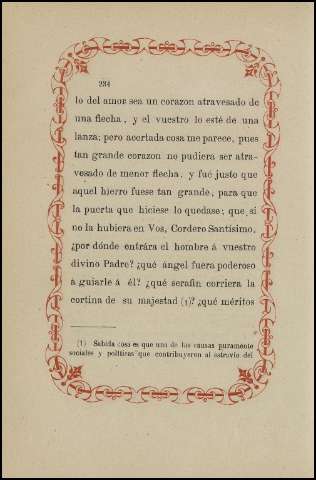 234
lo del amor sea un corazon atravesado de
una flecha, y el vuestro lo esté de una
lanza; pero acertada cosa me parece, pues
tan grande corazon no pudiera ser atra-
vesado de menor flecha, y fué justo que
aquel hierro fuese tan grande, para que
la puerta que hiciese lo quedase; que, si
no la hubiera en Vos, Cordero Santísimo,
¿por dónde entrára el hombre á vuestro
divino Padre? ¿qué ángel fuera poderoso
á guiarle á él? ¿qué serafin corriera la
cortina de su majestad (1)? ¿qué méritos
(1) Sabida cosa es que una de las causas puramente
sociales y políticas que contribuyeron al estravío del